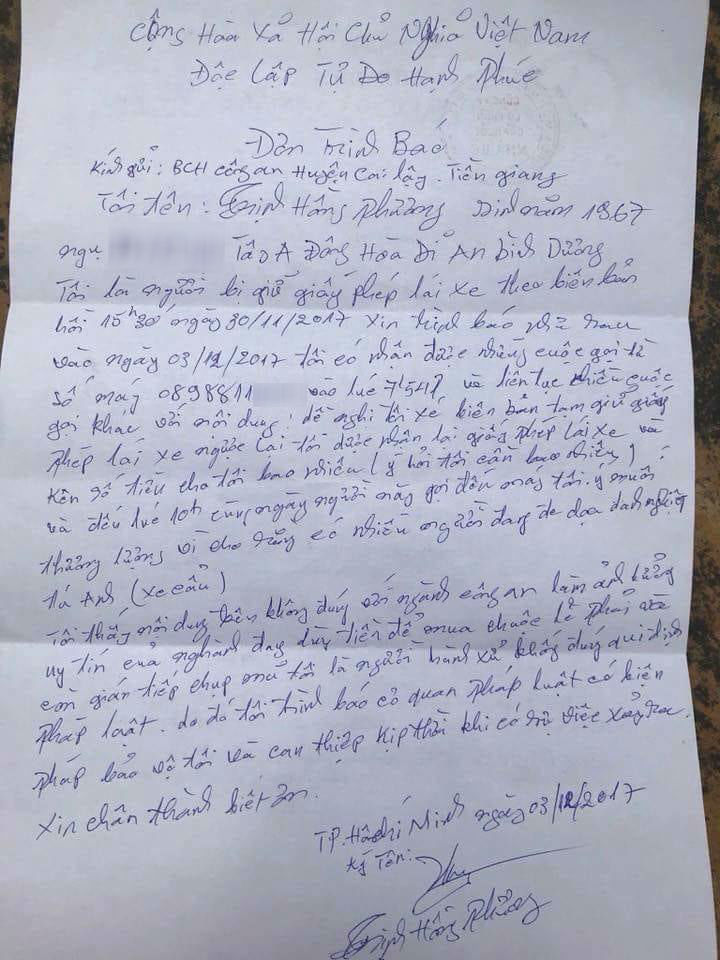 Cộng Hoà Xả Hội Chủ Nghĩa Việt Nam
Độc Lập Tự Do Hạnh Phúc
Đơn Trình Báo
Kính gửi: BCH công an Huyện Cai Lậy. Tiền giang
Tôi tên: Trịnh Hồng Phương Sinh năm 1967
ngụ Tân A Đông Hoà Dỉ An Bình Dương
Tôi là người bị giữ giấy phép lái xe theo biên bản
hồi 15h30' ngày 30/11/2017 xin trình báo như sau
vào ngày 03/12/2017 tôi có nhận được những cuộc gọi từ
số máy 0898811 vào lúc 7h54 và liên tục nhiều cuộc
gọi khác với nội dung: đề nghị tôi xé biên bản tạm giữ giấy
phép lái xe ngược lại tôi được nhận lại giấy phép lái xe và
kèn số tiền cho tôi bao nhiêu (ý hỏi tôi cần bao nhiêu)
và đến lúc 10h cùng ngày người này gọi đến máy tôi ý muốn
thương lượng vì cho rằng có nhiều người đang đe dọa danh nghiệp
tá Anh (xe cẩu)
Tôi thấy nội dung trên không đúng với ngành công an làm ảnh hưởng
uy tín của nghành đang dùng tiền để mua chuộc lẽ phải và
còn gián tiếp chụp mủ tôi là người hành xử không đúng qui định
pháp luật. do đó tôi trình báo cơ quan pháp luật có biện
pháp bảo vệ tôi và can thiệp kịp thời khi có sự việc xảy ra.
Xin chân thành biết ơn.
TP. Hồ chí Minh ngày 03/12/2017
Ký Tên:
Trịnh Hồng Phương